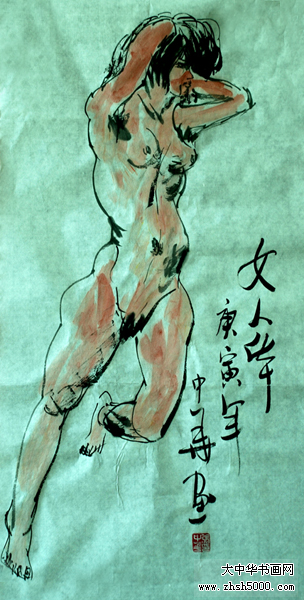 女人体
庚寅年
中華画
大中华书画网
www.zhsh5000.com